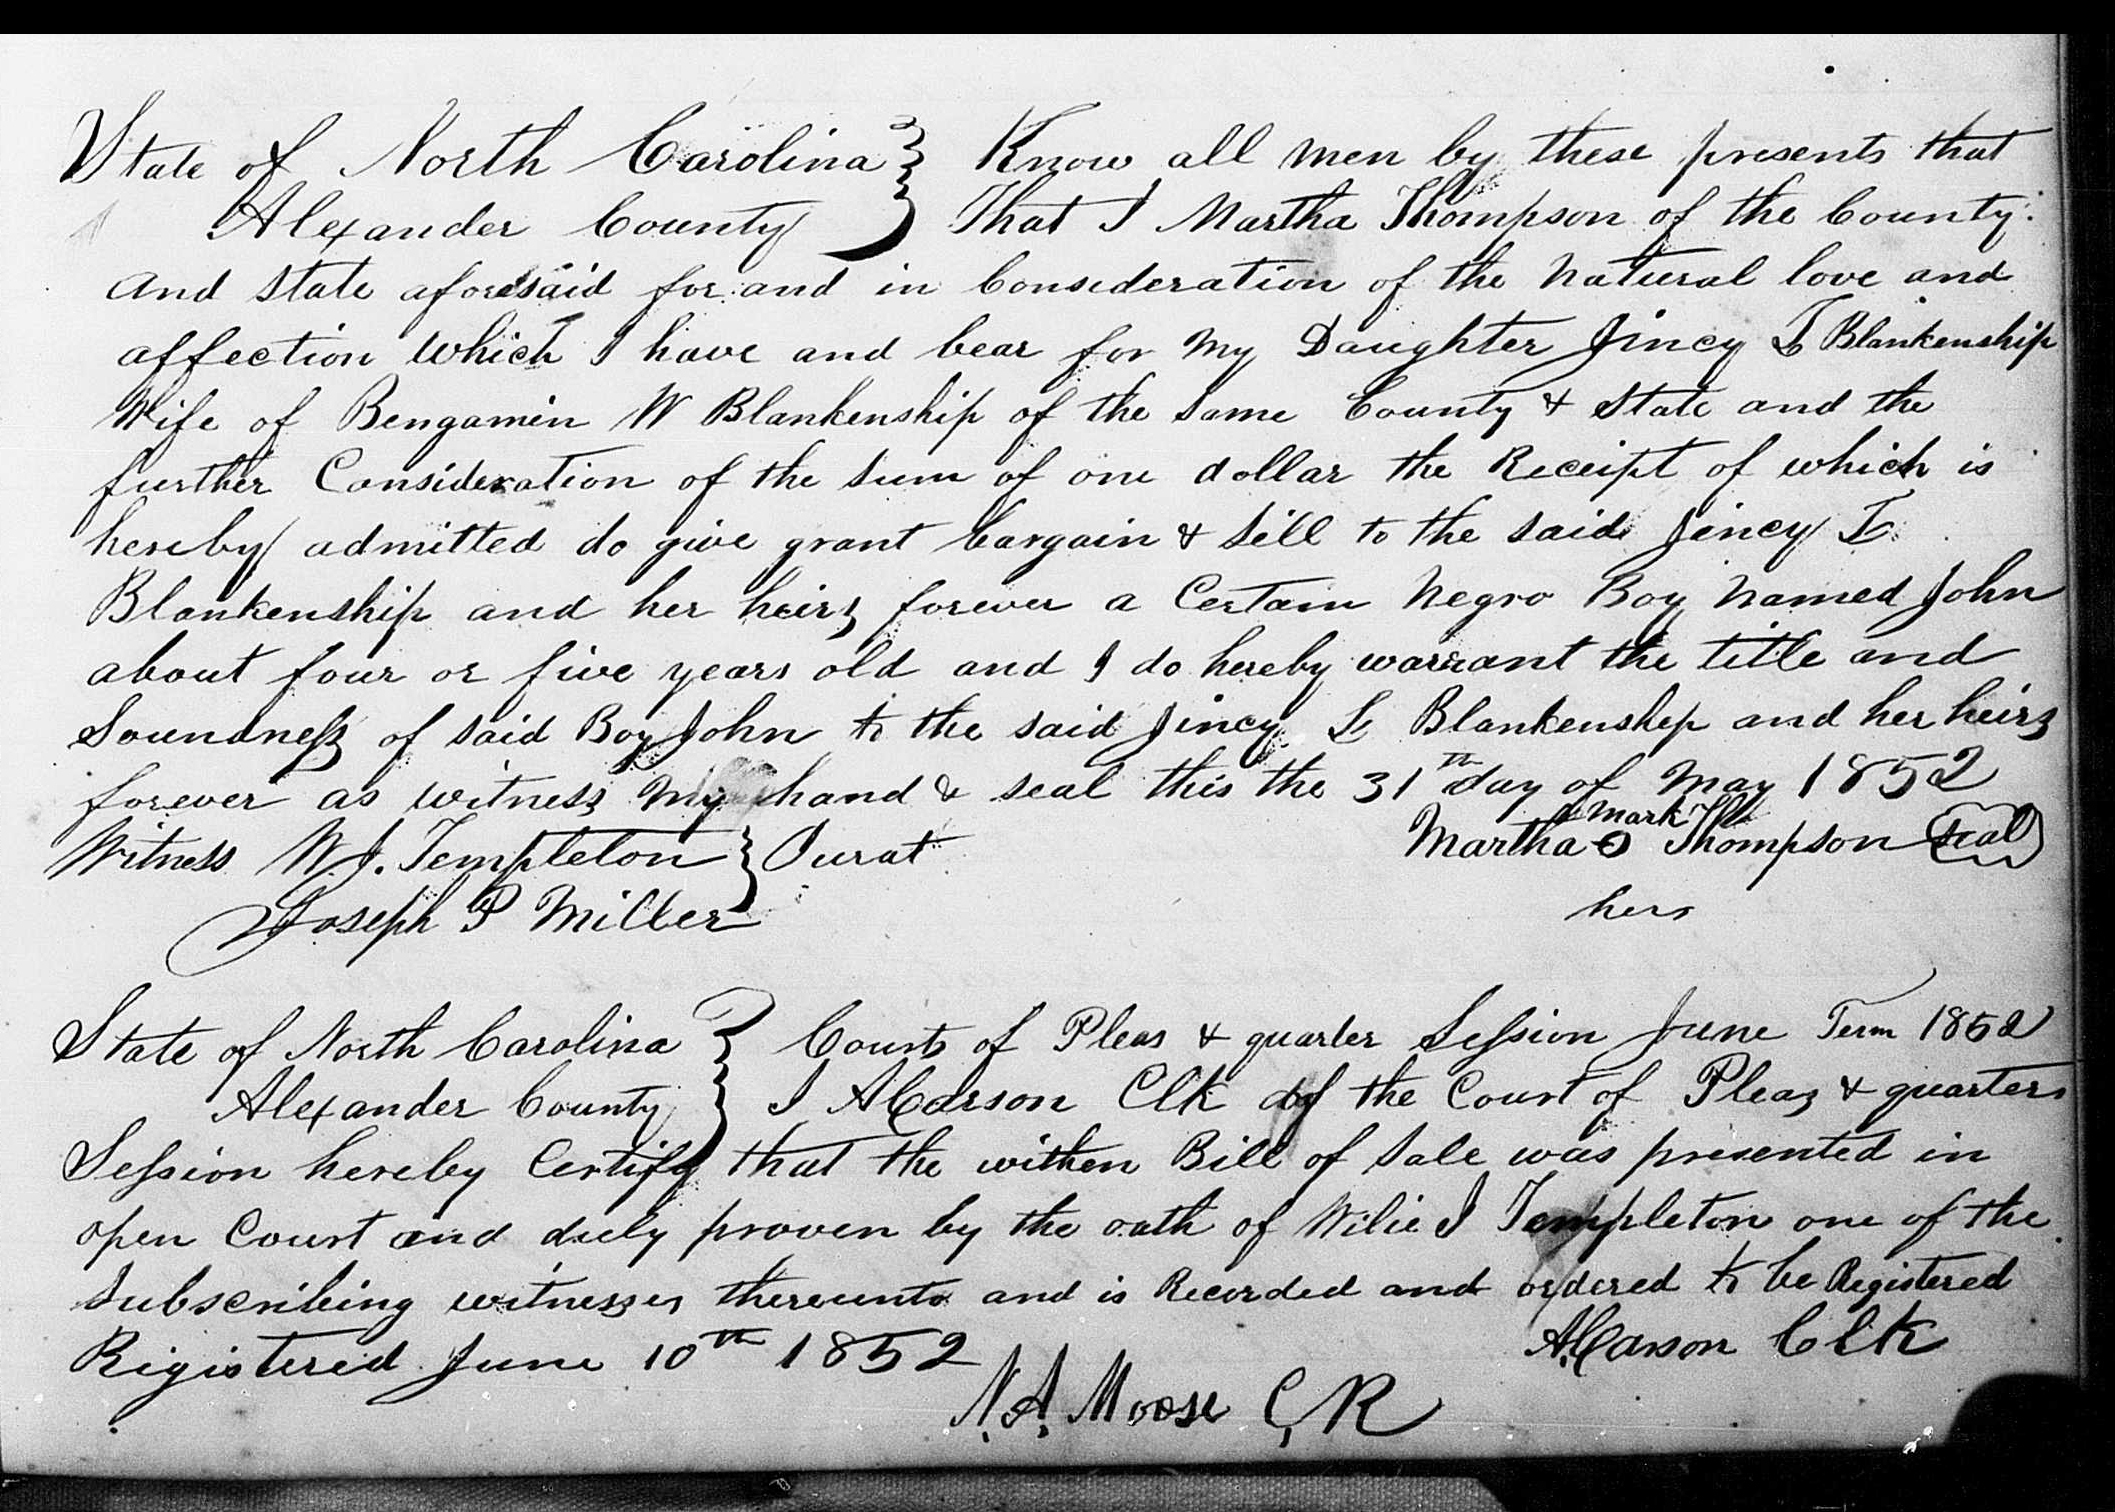 State of North Carolina } Know all men by these presents that
Alexander County } That I Martha Thompson of the County
and State aforesaid for and in Consideration of the natural love and
affection which I have and bear for my Daughter Jincy L Blankenship
Wife of Bengamin W Blankenship of the same County & State and the
further Consideration of the sum of one dollar the Receipt of which is
hereby admitted do give grant bargain & sell to the said Jincy L
Blankenship and her heirs forever a Certain Negro Boy named John
about four or five years old and I do hereby warrant the title and
Soundness of said Boy John to the said Jincy L Blankenship and her heirs
forever as witness my hand & seal this the 31th day of May 1852
mark
Witness W. J. Templeton } Jurat Martha O Thompson seal
Joseph P Miller hers
State of North Carolina } Courts of Pleas & quarter Session June Term 1852
Alexander County } I A Carson Clk of the Court of Pleas & quarters
Session hereby Certify that the within Bill of Sale was presented in
open Court and duly proven by the oath of Wilie J Templeton one of the
Subscribing witnesses thereunto and is Recorded and ordered to be Registered
A. Carson Clk
Registered June 10th 1852
N. A. Moose C, R